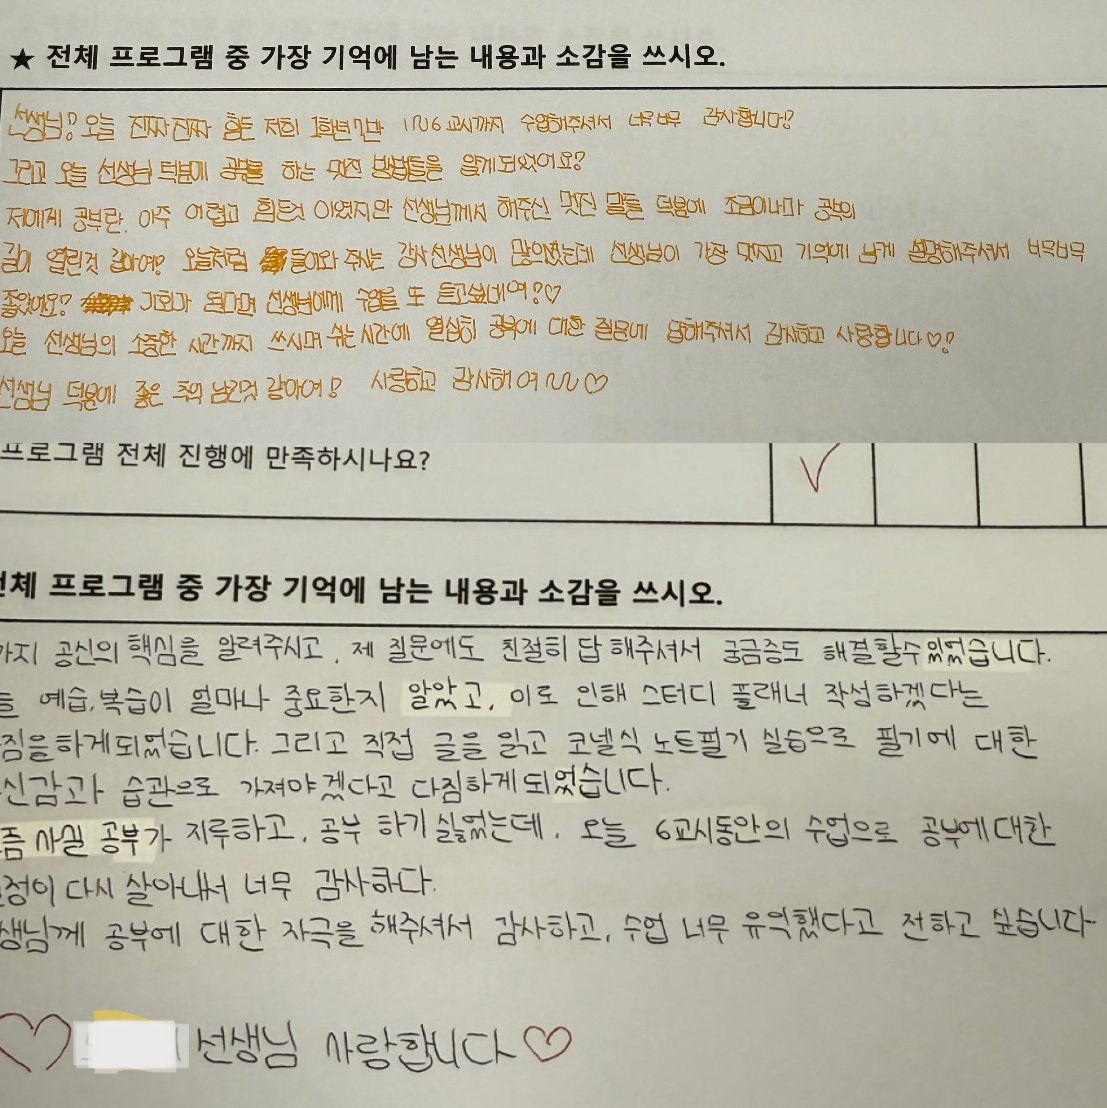 ★ 전체 프로그램 중 가장 기억에 남는 내용과 소감을 쓰시오.
선생님! 오늘 진짜진짜 힘든 저희 1학년7반 1~6교시까지 수업해주셔서 너무너무 감사합니다!
그리고 오늘 선생님 덕분에 공부를 하는 멋진 방법들을 알게되었어요?
저에게 공부란. 아주 어렵고 힘든것 이였지만 선생님께서 해주신 멋진 말들 덕분에 조금이나마 공부의
길이 열린것 같아여? 오늘처럼 들어와 주시는 강사선생님이 많이있는데 선생님이 가장 멋지고 기억에 남게 설명해주셔서 너무너무
좋았어요? 기회가 된다며 선생님에게 수업을 또 듣고싶네여?♡
오늘 선생님의 소중한 시간까지 쓰시며 쉬는시간에 열심히 공부에 대한 질문에 답해주셔서 감사하고 사랑합니다♡!
선생님 덕분에 좋은 추억 남긴것 같아여! 사랑하고 감사해여~~♡
프로그램 전체 진행에 만족하시나요?
전체 프로그램 중 가장 기억에 남는 내용과 소감을 쓰시오.
가지 공신의 핵심을 알려주시고, 제 질문에도 친절히 답 해주셔서 궁금증도 해결할수있었습니다.
예습,복습이 얼마나 중요한지 알았고, 이로 인해 스터디 플래너 작성하겠다는
짐을하게되었습니다. 그리고 직접 글을 읽고 코넬식 노트필기 실습으로 필기에 대한
신감과 습관으로 가져야겠다고 다짐하게되었습니다.
즘 사실 공부가 지루하고, 공부 하기싫었는데, 오늘 6교시동안의 수업으로 공부에대한
정이 다시 살아나서 너무 감사하다.
생님께 공부에 대한 자극을 해주셔서 감사하고, 수업 너무 유익했다고 전하고 싶습니다
♡ 선생님 사랑합니다♡